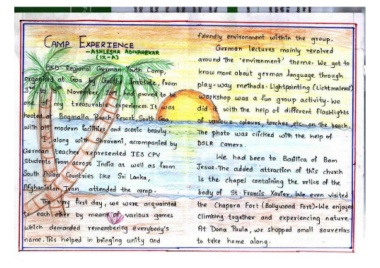 CAMP EXPERIENCE
- ASHLESHA ADMANEKAR
(IX-A)
Regional German Youth Camp,
organised at Goa by Institute, from
3rd November proved to be
my treasurable experience. It was
hosted at Bogmallo Beach Resort, South Goa
with all modern facilities and scenic beauty.
I along with Shravani, accompanied by
German teacher represented IES CPV
Students from across India as well as from
South Asian Countries like Sri Lanka,
Afghanistan, Iran attended the camp.
The very first day, we were acquainted
to each other by means of various games
which demanded remembering everybody's
name. This helped in bringing unity and
friendly environment within the group.
German lectures mainly revolved
around the 'environment' theme. We got to
know more about german language through
play-way methods. Lightpainting (Lichtmalerei)
workshop was a fun group activity. We
did it with the help of different flashlights
of various colours, torches, etc. on the beach.
The photo was clicked with the help of
DSLR camera.
We had been to Basilica of Bom
Jesus. The added attraction of this church
is the chapel containing the relics of the
body of St. Francis Xavier. We even visited
the Chapora Fort (Bollywood Fort). We enjoyed
Climbing together and experiencing nature.
At Dona Paula, we shopped small souvenirs
to take home along.